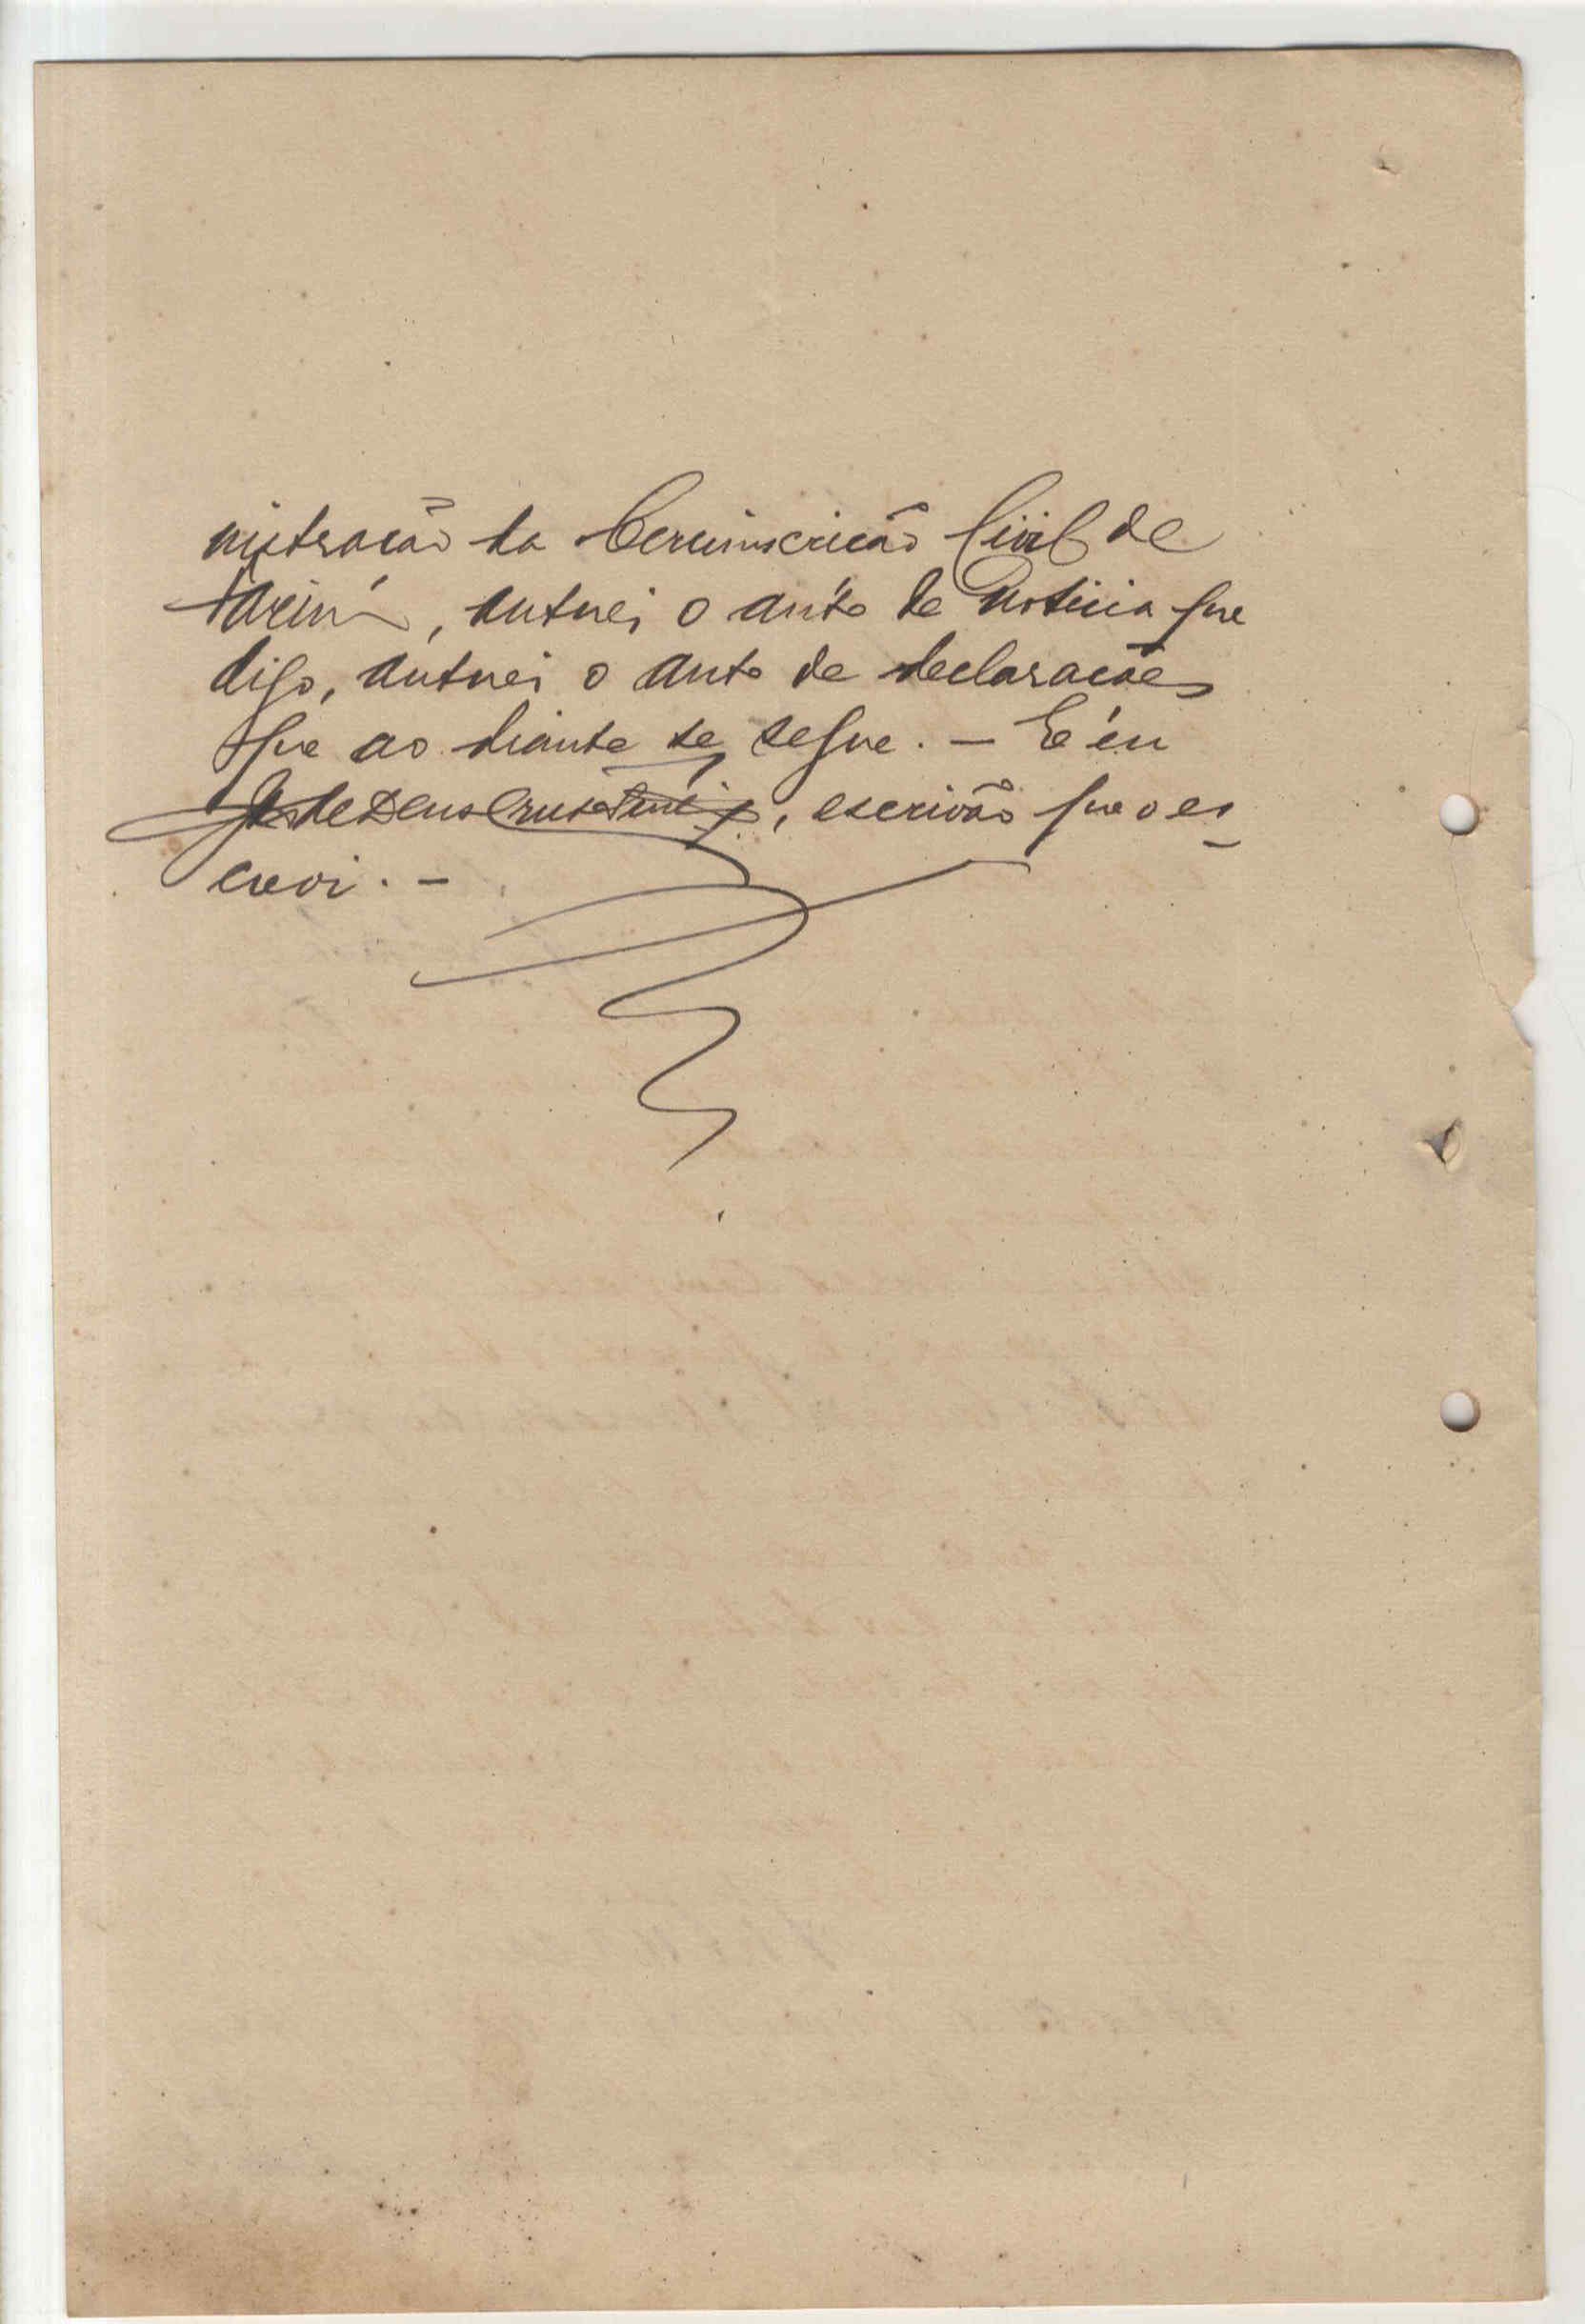 nistração da Cercunscrição Civil de
Farim, autuei o auto de noticia que
digo, autuei o auto de declarações
que ao diante se segue. — E eu
de Deus Crus, escrivão que o es
crevi. —